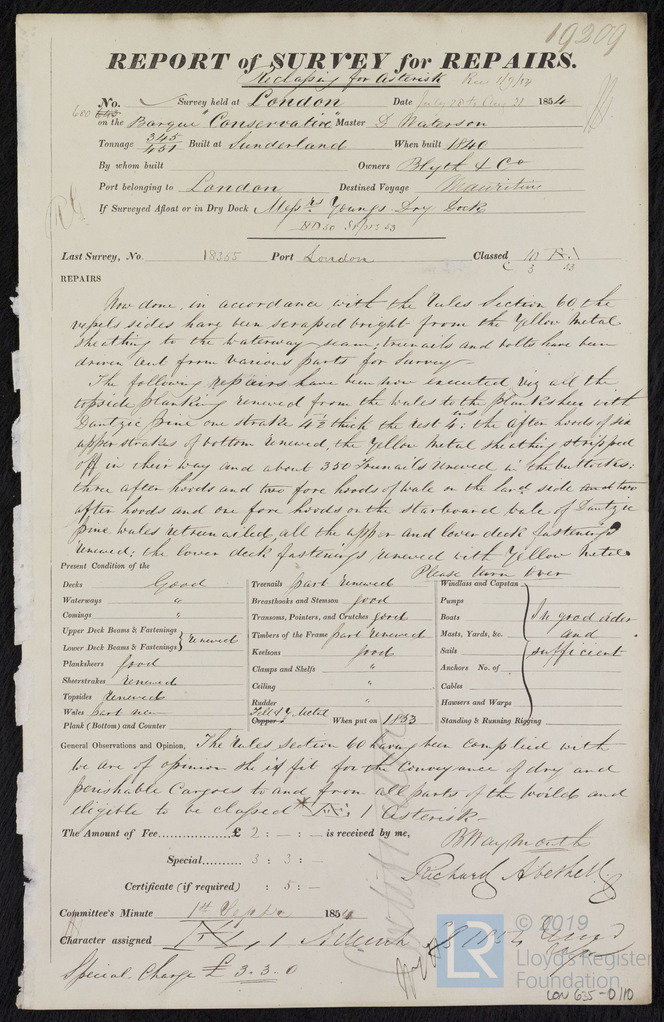 19209
REPORT of SURVEY for REPAIRS.
Reclassing for Asterisk Rec 1/9/54
600
No. Survey held at London Date July 28 to Aug 21 1854
on the Barque "Conservative" Master D Waterson
Tonnage 345 / 451 Built at Sunderland When built 1840
By whom built Owners Blyth & Co
Port belonging to London Destined Voyage Mauritius
If Surveyed Afloat or in Dry Dock Messrs Youngs Dry Dock
Last Survey, No. 18355 Port London Classed
53
REPAIRS
Now done in accordance with the Rules Section 60, the
vessels sides have been scraped bright from the Yellow Metal
sheathing to the waterway seam; trenails and bolts have been
driven out from various parts for survey
The following repairs have been now executed viz all the
topside planking renewed from the wales to the planksheer with
Dantzic pine one strake 4½ thick the rest 4 ins: the after hoods of six
upper strakes of bottom renewed, the Yellow Metal sheathing stripped
off in their way and about 350 Trenails renewed in the buttocks:
three after hoods and two fore hoods of wale on the larbd side and two
after hoods and one fore hoods on the starboard wale of Dantzic
pine, wales retrenailed, all the upper and lower deck fastenings
renewed; the lower deck fastenings renewed with Yellow Metal
Please turn over
Present Condition of the
Decks Good
Waterways "
Comings "
Upper Deck Beams & Fastenings
Lower Deck Beams & Fastenings } renewed
Planksheers good
Sheerstrakes renewed
Topsides renewed
Wales part new
Plank (Bottom) and Counter
Treenails part renewed
Breasthooks and Stemson good
Transoms, Pointers, and Crutches good
Timbers of the Frame part renewed
Keelsons good
Clamps and Shelfs "
Ceiling "
Rudder "
Felt & Y Metal
Copper When put on 1853
Windlass and Capstan
Pumps
Boats
Masts, Yards, &c.
Sails
Anchors No. of
Cables
Hawsers and Warps
Standing & Running Rigging
In good order
and
sufficient
General Observations and Opinion, The Rules Section 60 having been complied with
we are of opinion she is fit for the conveyance of dry and
perishable Cargoes to and from all parts of the world and
eligible to be classed 1 Asterisk
The Amount of Fee £ 2 : - : - is received by me,
B Waymouth
Special 3 : 3 : -
Richard Abethell
Certificate (if required) : 5 : -
Committee's Minute 1st Septr 1854
Character assigned 1 Asterisk
Special Charge £ 3. 3. 0
© 2019
LR
Lloyd's Register
Foundation
LON 635-0110